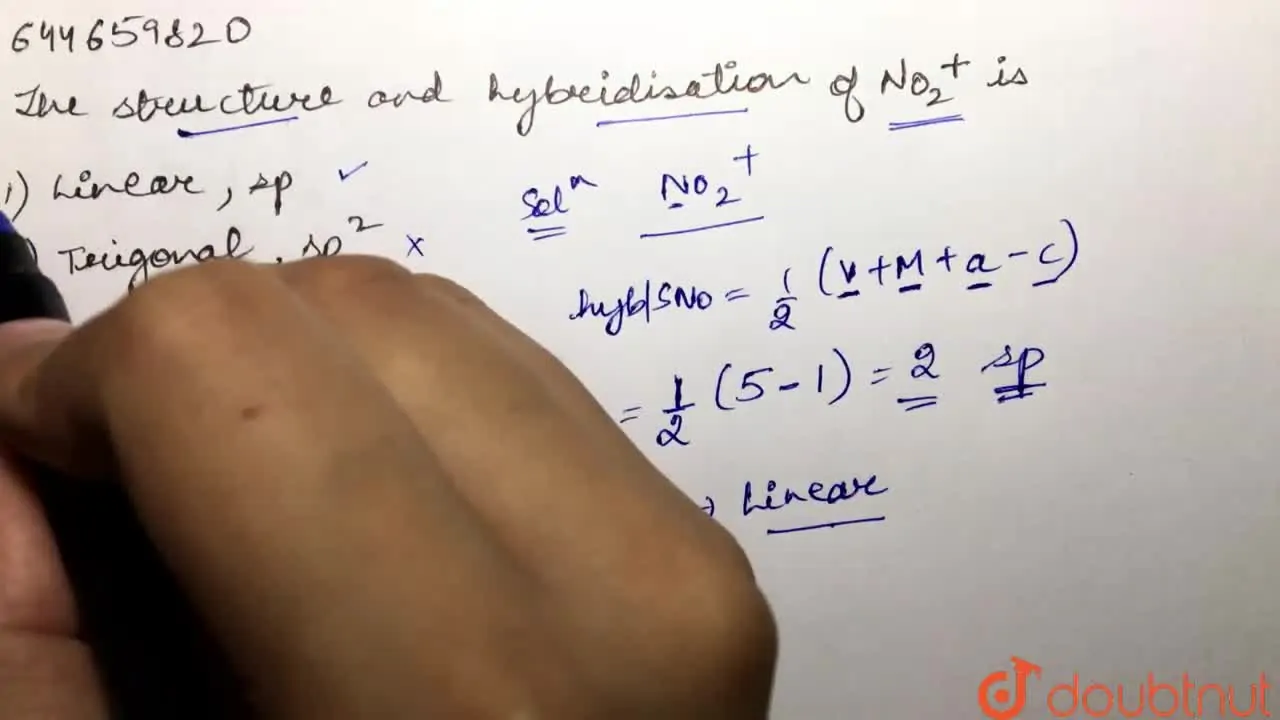 644659820
The structure and hybridisation of NO2+ is
1) Linear, sp ✓
) Trigonal, sp2 ×
Soln NO2+
hyb/SNO = 1/2 (V+M+a-c)
= 1/2 (5-1) = 2 sp
→ Linear
doubtnut